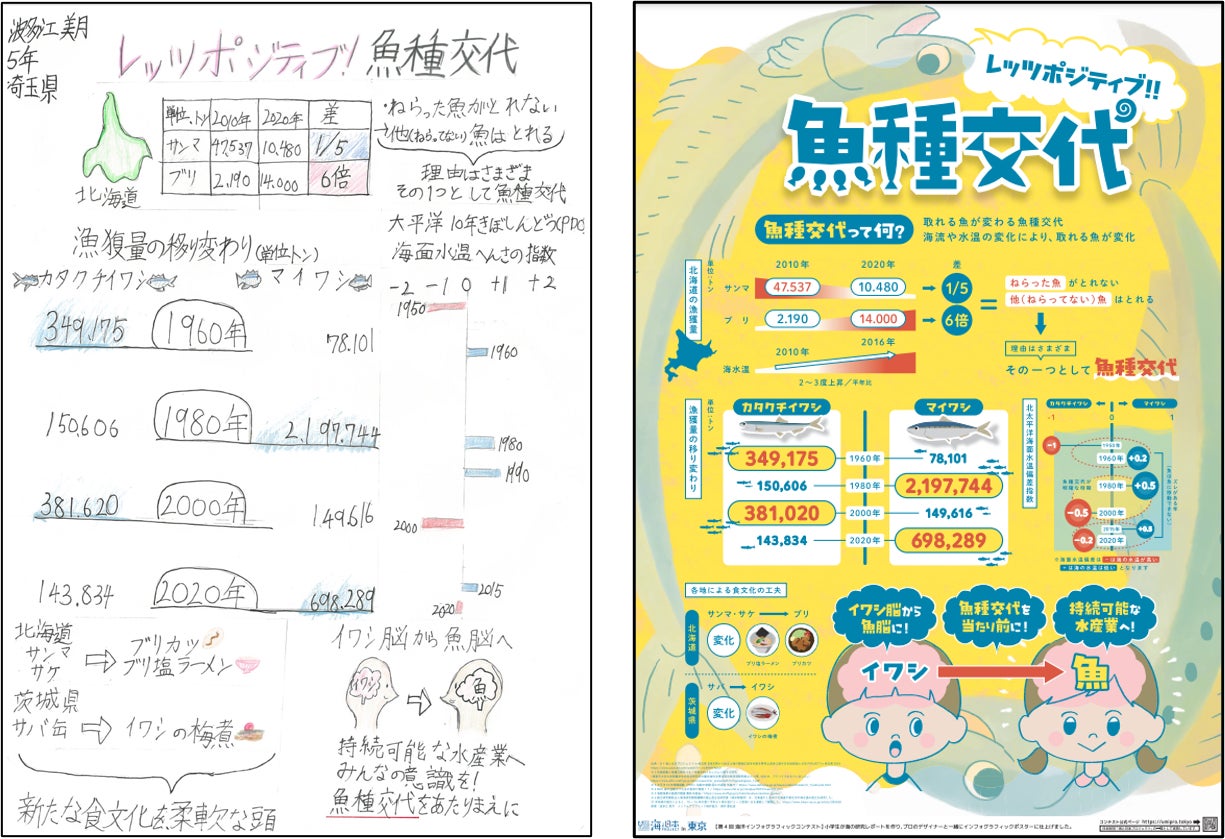 波多江 美月
5年
埼玉県
レッツポジティブ! 魚種交代
単位、トン 2010年 2020年 差
サンマ 47,537 10,480 1/5
ブリ 2.190 14.000 6倍
北海道
・ねらった魚がとれない
→他(ねらってない)魚はとれる
理由はさまざま
その1つとして魚種交代
大平洋10年きぼしんどう(PDO)
海面水温へんさの指数
-2 -1 0 +1 +2
1950
1960
1980
1990
2000
2015
2020
漁獲量の移り変わり(単位トン)
カタクチイワシ マイワシ
349.175 1960年 78.101
150,606 1980年 2,197,744
381.620 2000年 149,616
143,834 2020年 698,289
北海道
サンマ
サケ
ブリカツ
ブリ塩ラーメン
茨城県
サバ缶 イワシの梅煮
新たな食文化を柔軟な頭
イワシ脳から魚脳へ
イワシ
魚
持続可能な水産業へ
みんなの意識を!
魚種交代をあたりまえに
レッツポジティブ!!
魚種交代
魚種交代って何?
取れる魚が変わる魚種交代
海流や水温の変化により、取れる魚が変化
北海道の漁獲量
単位:トン
2010年 2020年 差
サンマ 47.537 10.480 1/5
ブリ 2.190 14.000 6倍
=
ねらった魚 がとれない
他(ねらってない)魚 はとれる
理由はさまざま
その一つとして 魚種交代
2010年 2016年
海水温
2〜3度上昇/平年比
漁獲量の移り変わり
単位:トン
カタクチイワシ マイワシ
349,175 1960年 78,101
150,606 1980年 2,197,744
381,020 2000年 149,616
143,834 2020年 698,289
北太平洋海面水温偏差指数
カタクチイワシ マイワシ
-1 0 1
-1 1950年
1960年 +0.2
1980年 +0.5
-0.5 2000年
2015年 +0.5
-0.2 2020年
各地による食文化の工夫
北海道
サンマ・サケ ブリ
変化
ブリ塩ラーメン ブリカツ
茨城県
サバ イワシ
変化
イワシの梅煮
イワシ脳から
魚脳に!
魚種交代を
当たり前に!
持続可能な
水産業へ!
イワシ
魚
海と日本 in 東京
【第4回 海洋インフォグラフィックコンテスト】小学生が海の研究レポートを作り、プロのデザイナーと一緒にインフォグラフィックポスターに仕上げました。
コンテスト公式ページ https://umipro.tokyo